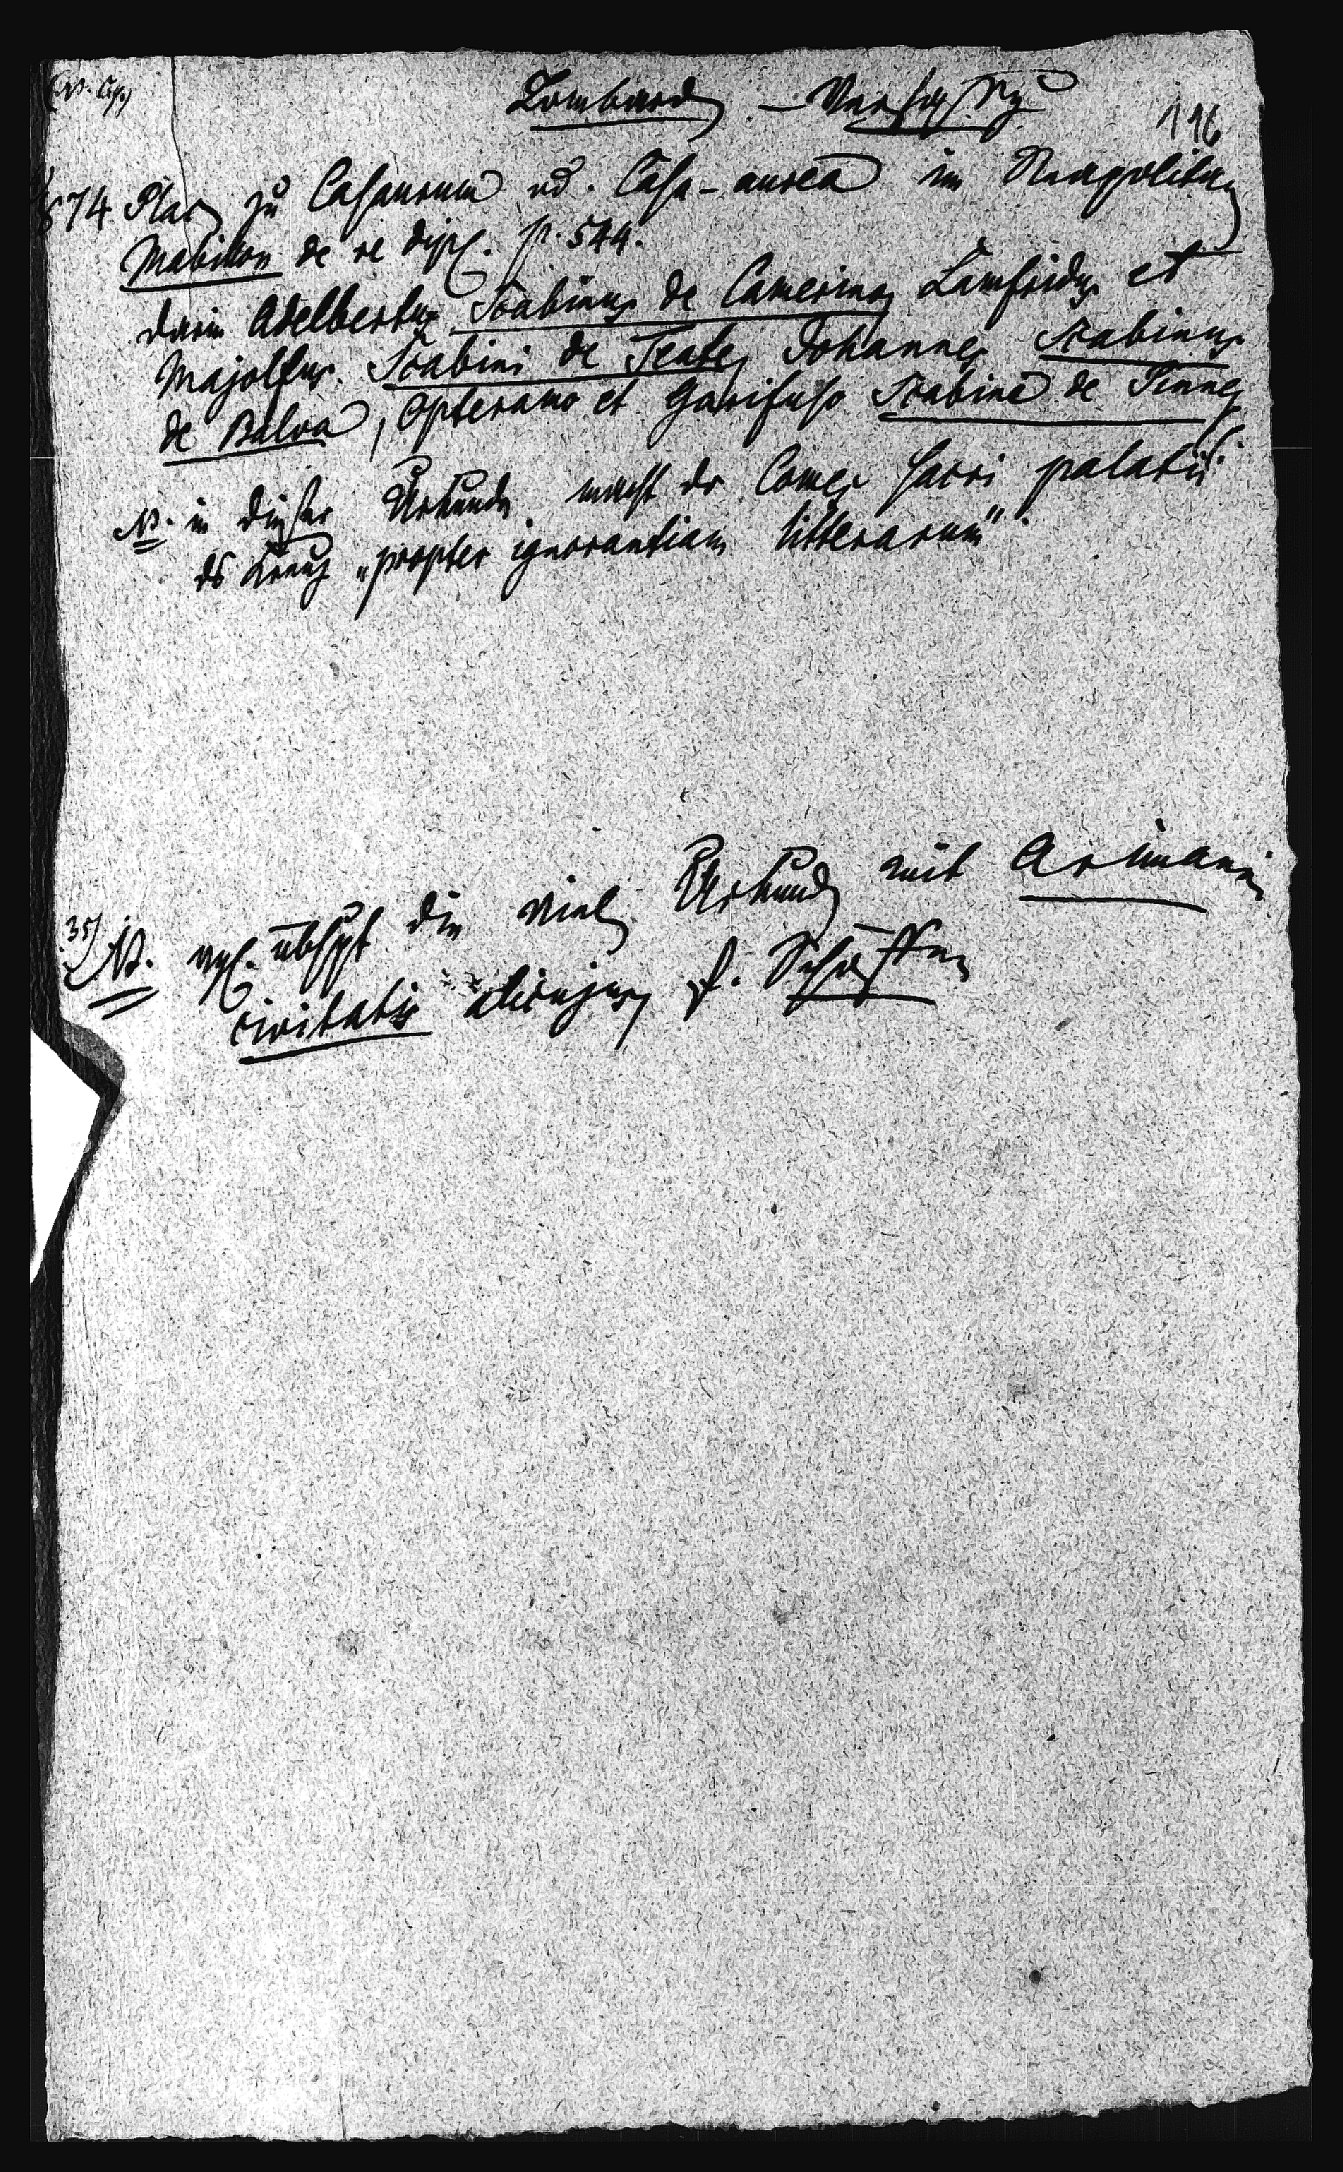 Lombarden – Verfassg
116
874. Plac zu Casauruea od. Casa-aurea im Neapolitan
Mabillon de re dipl. p. 544.
darin Adelbertus Scabinus de Camerino, Lamfridus et
Majolfus Scabini de Teate, Johannes Scabinus
de Balva, Opteramo et Garifuso Scabino de Penne
NB. in dieser Urkunde macht der Comes sacri palatii
das Kreuz „propter ignorantiam litterarum".
35) NB. vgl. übhpt die vielen Urkunden mit Arimann
civitatis s. Schöffen